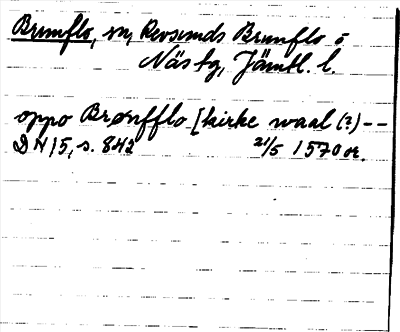 Brunflo, sn, Revsunds Brunflo o
Näs tg, Jämtl. l.
oppo Brønfflo [kirke waal (?) --
DN 15, s. 842 21/5 1570 or.